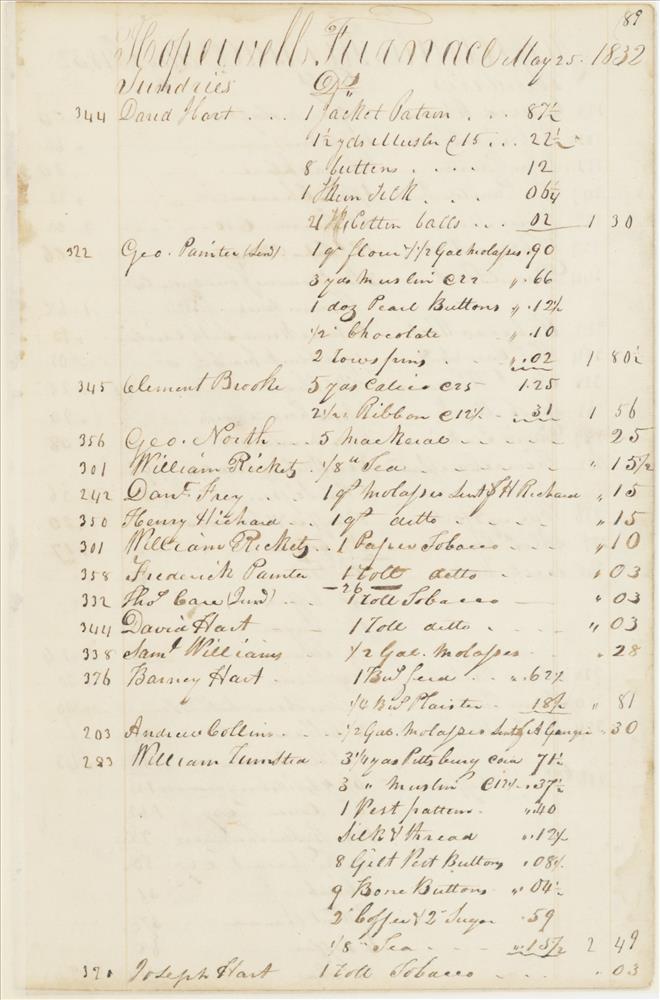 189
Hopewell Furnace May 25. 1832
Sundries Drs
344 David Hart ... 1 Jacket Patron ... 87½
1½ yds Muslin @ 15 ... 22½
8 buttons .... 12
1 Skein Silk ... 06¼
2 Cotton balls ... 02 1 30
322 Geo. Painter (Senr) 1 qr flour & 1/2 Gal molasses .90
3 yds muslin @ 22 " .66
1 doz Pearl Buttons " .12½
1/2 " Chocolate " .10
2 rows pins .. " .02 1 80½
345 Clement Brooke 5 yds Calico @ 25 1.25
2 1/2 " Ribbon @ 12½ - 31 1 56
356 Geo. North - - 5 mackeral - - - - - 25
301 William Rickets 1/8 " Tea - - - - - - " 15½
242 Danl. Frey .. 1 qt molasses Sent H Richard " 15
350 Henry Hichard .. 1 qt ditto - - - - - " 15
301 William Rickets .. 1 Paper Tobacco - - - " 10
358 Frederick Painter 1 roll ditto - - - " 03
- 26 -
332 Thos. Care (Junr) - - 1 roll Tobacco - - " 03
344 David Hart - - 1 roll ditto - - - " 03
338 Saml Williams 1/2 Gal. Molasses - - - " 28
376 Barney Hart . 1 Bul .. " .62½
1/4 Bul Plaister - 18¾ " 81
203 Andrew Collins - - 1/2 Gal. Molasses Sent A " 30
283 William 3 1/4 yds Pittsburg Cord 71½
3 " muslin @ 12½ .. 37½
1 Vest pattern - " .40
Silk & thread " .12½
8 Gilt Vest Buttons " .08¼
9 Bone Buttons " 04½
2 " Coffee & 2 " Sugar .59
1/8 " Tea - - - " .15½ 2 49
Joseph Hart 1 roll Tobacco - - - - " 03